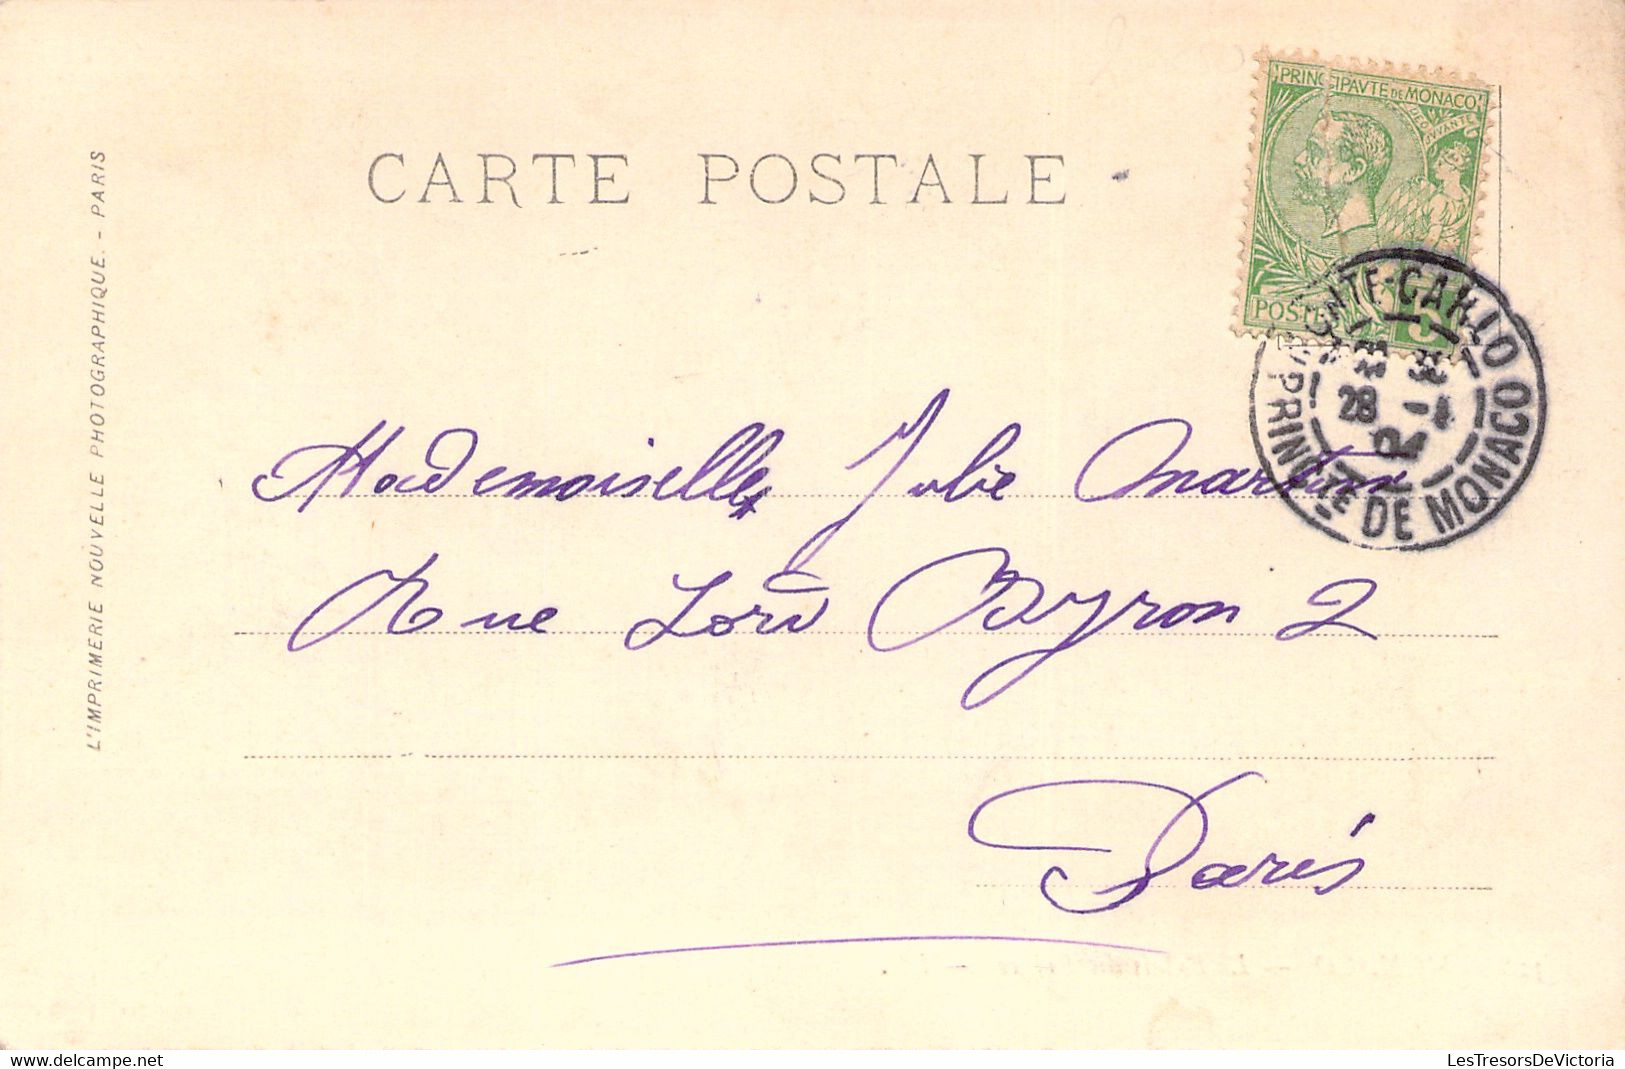 CARTE POSTALE
L'IMPRIMERIE NOUVELLE PHOTOGRAPHIQUE. - PARIS
PRINCIPAVTE DE MONACO
DEO JVVANTE
POSTES
5
MONTE-CARLO
28 -4
04
PRINCTE DE MONACO
Mademoiselle Julie Martin
Rue Lord Byron 2
Paris
LesTresorsDeVictoria